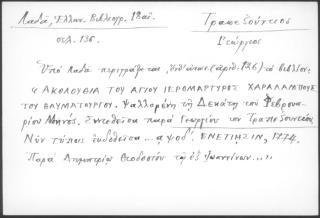 Λαδᾶ, Ἑλλην. Βιβλιογρ. 18 αἰ.
Τραπεζούντιος
σελ. 136.
Γεώργιος
Ὑπὸ Λαδᾶ περιγράφεται, (ἀριθ. 126) τὸ βιβλίον:
« ΑΚΟΛΟΥΘΙΑ ΤΟΥ ΑΓΙΟΥ ΙΕΡΟΜΑΡΤΥΡΟΣ ΧΑΡΑΛΑΜΠΟΥΣ
ΤΟΥ ΘΑΥΜΑΤΟΥΡΓΟΥ. Ψαλλομένη τῇ Δεκάτῃ τοῦ Φεβρουα-
ρίου Μηνός. Συντεθεῖσα παρὰ Γεωργίου τοῦ Τραπεζουντίου
Νῦν τύποις ἐκδοθεῖσα... αψοδ´. ΕΝΕΤΙΗΣΙΝ, 1774.
Παρὰ Δημητρίῳ Θεοδοσίου τῷ ἐξ Ἰωαννίνων...»